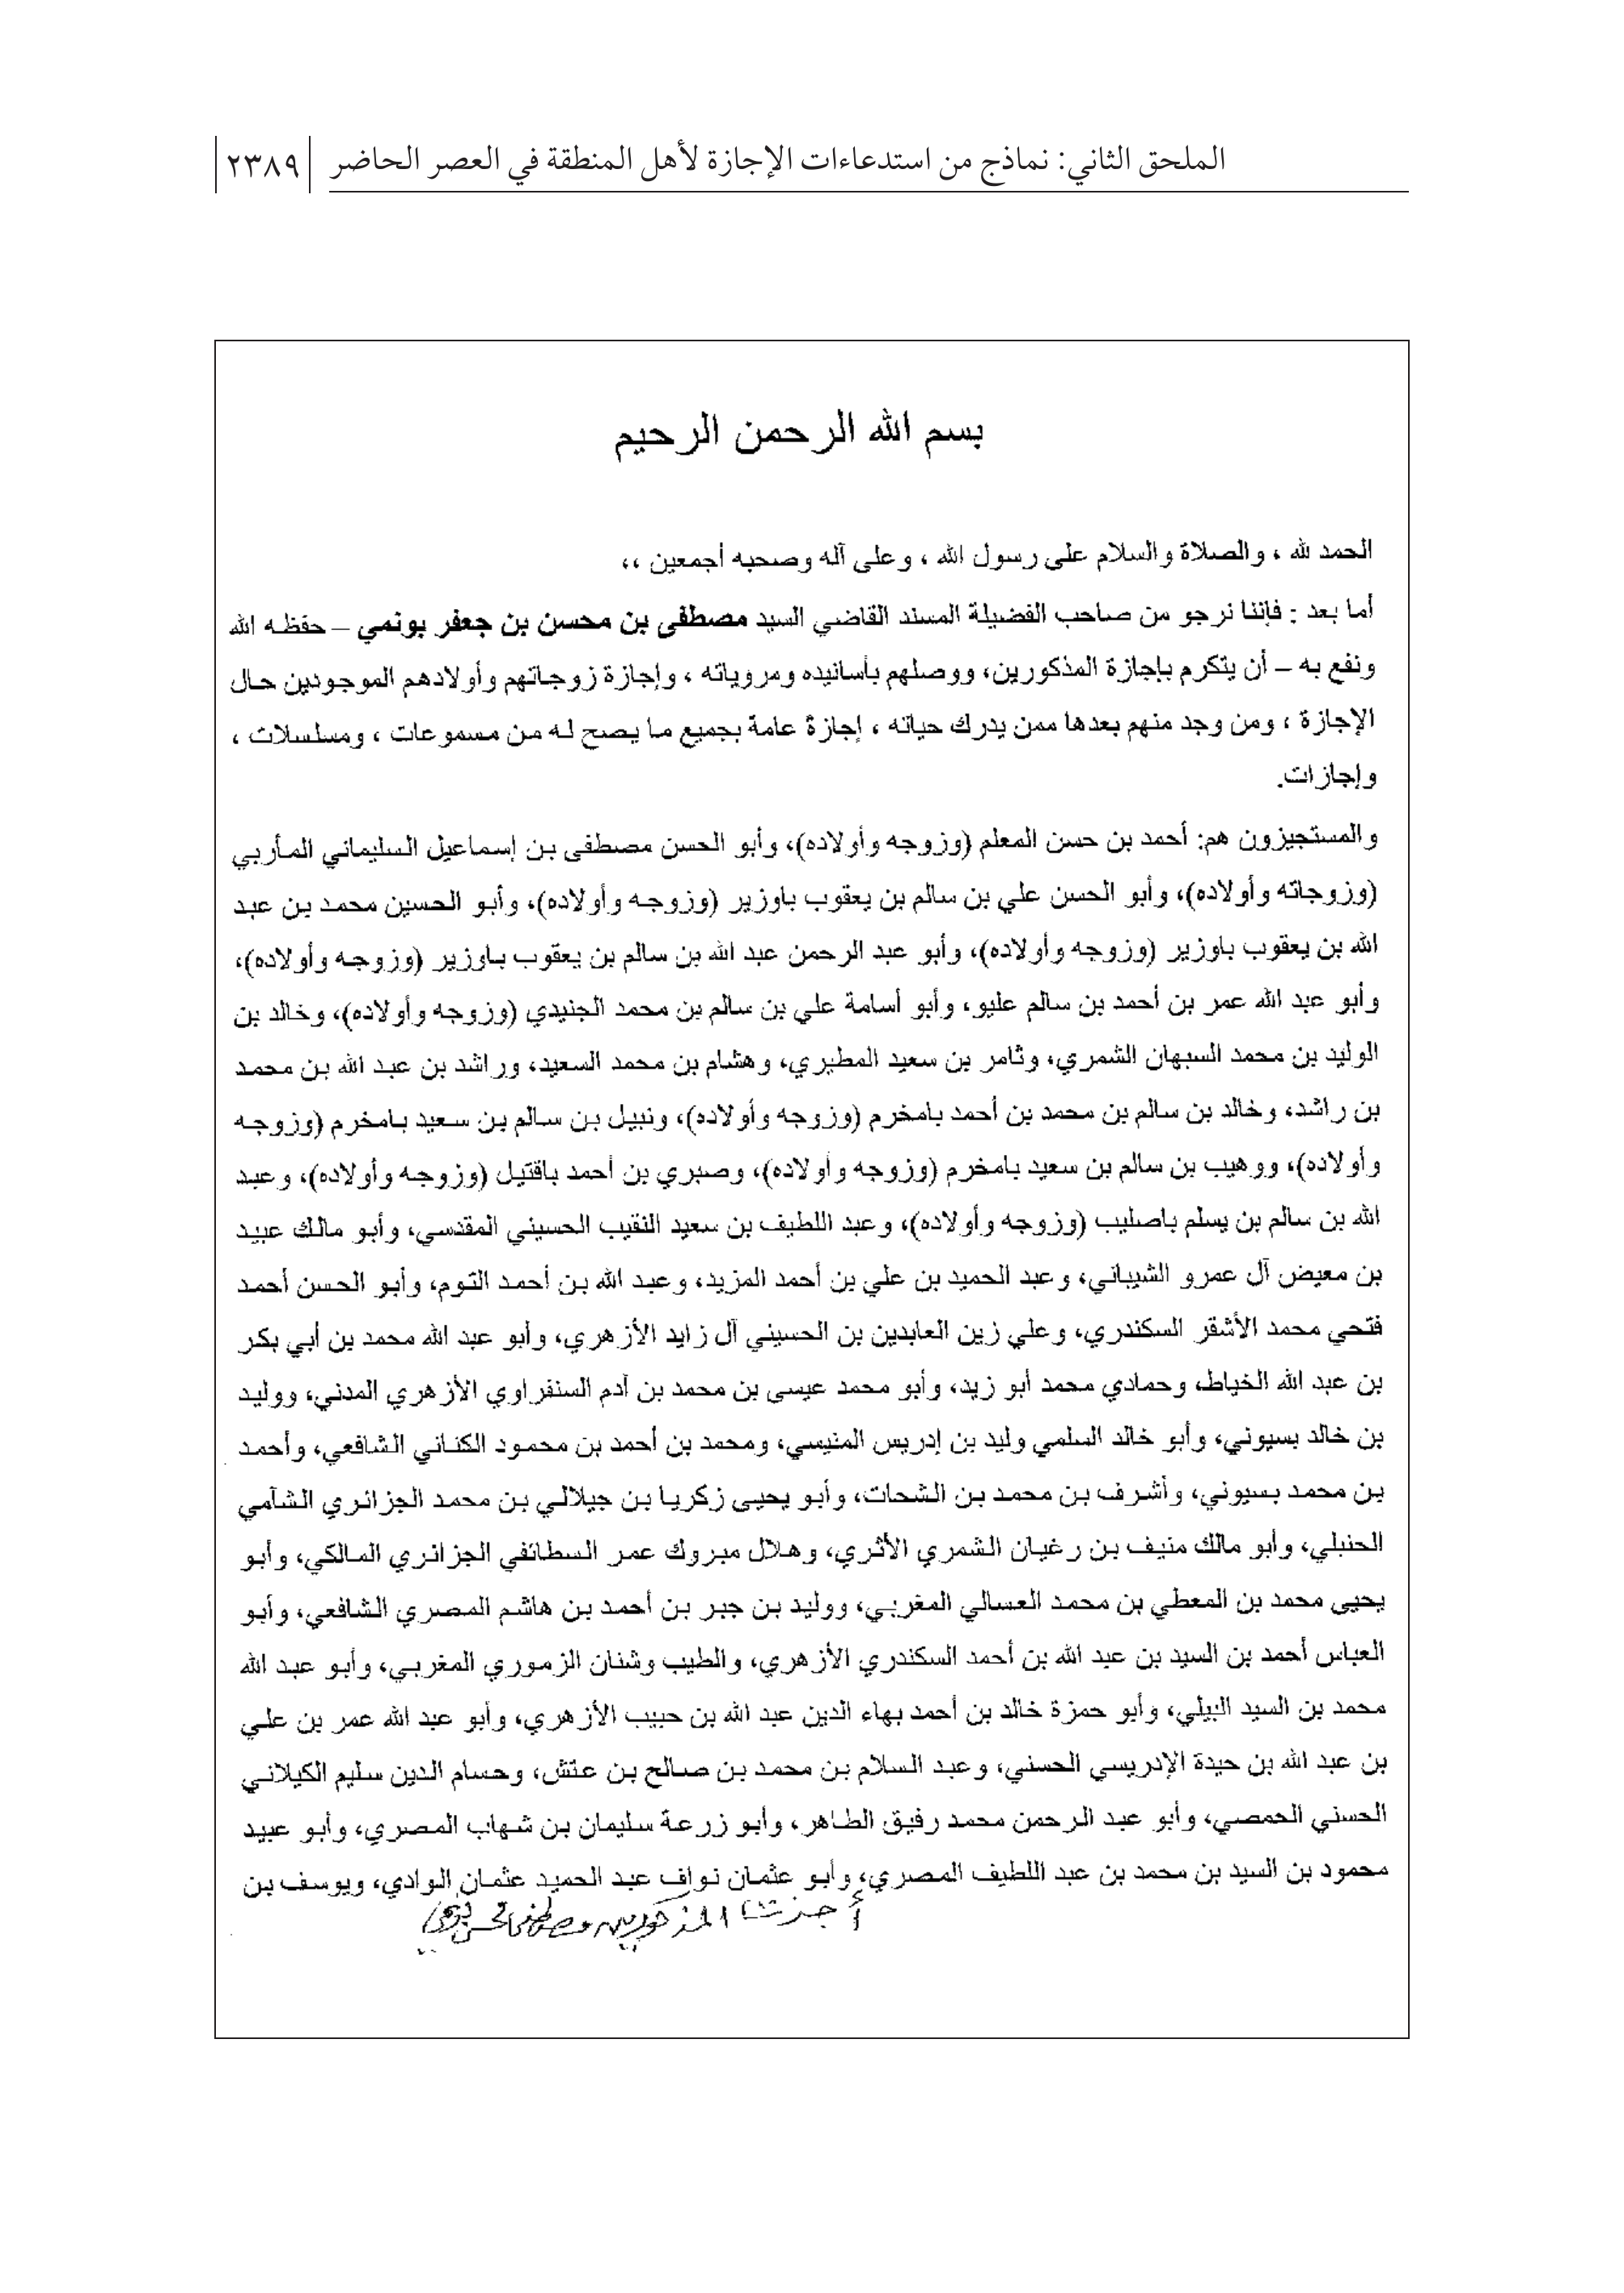 الملحق الثاني: نماذج من استدعاءات الإجازة لأهل المنطقة في العصر الحاضر ٢٣٨٩
بسم الله الرحمن الرحيم
الحمد لله ، والصلاة والسلام على رسول الله ، وعلى آله وصحبه أجمعين ،،
أما بعد : فإننا نرجو من صاحب الفضيلة المسند القاضي السيد مصطفى بن محسن بن جعفر بونمي – حفظه الله
ونفع به – أن يتكرم بإجازة المذكورين، ووصلهم بأسانيده ومروياته ، وإجازة زوجاتهم وأولادهم الموجودين حال
الإجازة ، ومن وجد منهم بعدها ممن يدرك حياته ، إجازةً عامة بجميع ما يصح له من مسموعات ، ومسلسلات ،
وإجازات.
والمستجيزون هم: أحمد بن حسن المعلم (وزوجه وأولاده)، وأبو الحسن مصطفى بن إسماعيل السليماني المأربي
(وزوجاته وأولاده)، وأبو الحسن علي بن سالم بن يعقوب باوزير (وزوجه وأولاده)، وأبو الحسين محمد بن عبد
الله بن يعقوب باوزير (وزوجه وأولاده)، وأبو عبد الرحمن عبد الله بن سالم بن يعقوب باوزير (وزوجه وأولاده)،
وأبو عبد الله عمر بن أحمد بن سالم عليو، وأبو أسامة علي بن سالم بن محمد الجنيدي (وزوجه وأولاده)، وخالد بن
الوليد بن محمد السبهان الشمري، وثامر بن سعيد المطيري، وهشام بن محمد السعيد، وراشد بن عبد الله بن محمد
بن راشد، وخالد بن سالم بن محمد بن أحمد بامخرم (وزوجه وأولاده)، ونبيل بن سالم بن سعيد بامخرم (وزوجه
وأولاده)، ووهيب بن سالم بن سعيد بامخرم (وزوجه وأولاده)، وصبري بن أحمد باقتيل (وزوجه وأولاده)، وعبد
الله بن سالم بن يسلم باصليب (وزوجه وأولاده)، وعبد اللطيف بن سعيد النقيب الحسيني المقدسي، وأبو مالك عبيد
بن معيض آل عمرو الشيباني، وعبد الحميد بن علي بن أحمد المزيد، وعبد الله بن أحمد التوم، وأبو الحسن أحمد
فتحي محمد الأشقر السكندري، وعلي زين العابدين بن الحسيني آل زايد الأزهري، وأبو عبد الله محمد بن أبي بكر
بن عبد الله الخياط، وحمادي محمد أبو زيد، وأبو محمد عيسى بن محمد بن آدم السنفراوي الأزهري المدني، ووليد
بن خالد بسيوني، وأبو خالد السلمي وليد بن إدريس المنيسي، ومحمد بن أحمد بن محمود الكناني الشافعي، وأحمد
بن محمد بسيوني، وأشرف بن محمد بن الشحات، وأبو يحيى زكريا بن جيلالي بن محمد الجزائري الشآمي
الحنبلي، وأبو مالك منيف بن رغيان الشمري الأثري، وهلال مبروك عمر السطائفي الجزائري المالكي، وأبو
يحيى محمد بن المعطي بن محمد العسالي المغربي، ووليد بن جبر بن أحمد بن هاشم المصري الشافعي، وأبو
العباس أحمد بن السيد بن عبد الله بن أحمد السكندري الأزهري، والطيب وشنان الزموري المغربي، وأبو عبد الله
محمد بن السيد البيلي، وأبو حمزة خالد بن أحمد بهاء الدين عبد الله بن حبيب الأزهري، وأبو عبد الله عمر بن علي
بن عبد الله بن حيدة الإدريسي الحسني، وعبد السلام بن محمد بن صالح بن عتش، وحسام الدين سليم الكيلاني
الحسني الحمصي، وأبو عبد الرحمن محمد رفيق الطاهر، وأبو زرعة سليمان بن شهاب المصري، وأبو عبيد
محمود بن السيد بن محمد بن عبد اللطيف المصري، وأبو عثمان نواف عبد الحميد عثمان الوادي، ويوسف بن
أجزت المذكورين مصطفى محسن